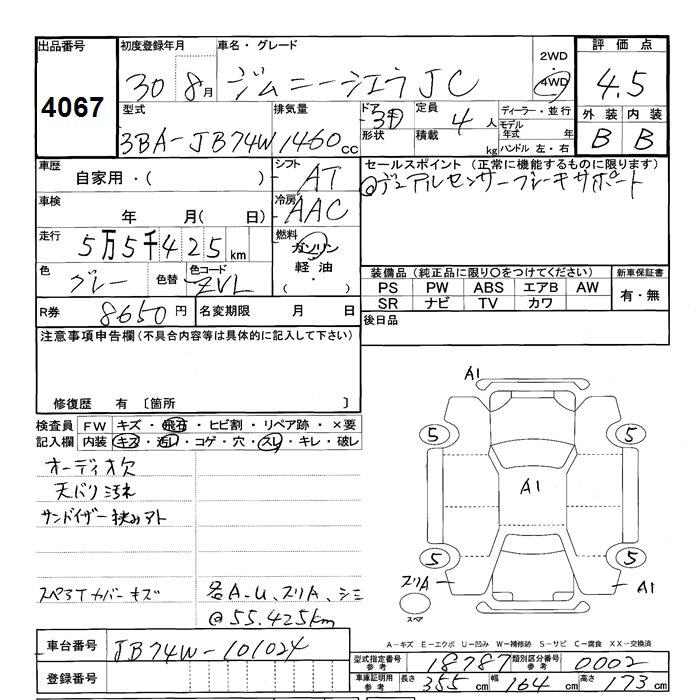 出品番号 初度登録年月 車名・グレード 2WD 評価点
4067 30 8月 ジムニーシエラJC 4WD 4.5
型式 排気量 ドア 定員 ディーラー・並行 外装 内装
3BA-JB74W 1460cc 3 4人 モデル年式 年 B B
形状 積載 kg ハンドル 左・右
車歴 シフト セールスポイント (正常に機能するものに限ります)
自家用・( ) AT ◎デュアルセンサーブレーキサポート
車検 冷房
年 月( 日) AAC
走行 燃料
5万5千425km ガソリン
軽油
( ・ )
色 色替 色コード 装備品 (純正品に限り○をつけてください) 新車保証書
グレー ZVL PS PW ABS エアB AW 有・無
SR ナビ TV カワ
R券 8650円 名変期限 月 日 後日品
注意事項申告欄 (不具合内容等は具体的に記入して下さい)
修復歴 有 〔箇所 〕
検査員 FW キズ・飛石・ヒビ割・リペア跡・×要
記入欄 内装 キズ・汚レ・コゲ・穴・スレ・キレ・破レ
オーディオ欠
天バリ汚れ
サンバイザー挟みアト
スペSTカバーキズ 各A-U、スリA、シミ
@55.425km
A1
5 5
A1
5 5
スリA A1
スペア
A-キズ E-エクボ U-凹み W-補修跡 S-サビ C-腐食 XX-交換済
車台番号 JB74W-101024
登録番号
型式指定番号 参考 18787 類別区分番号 参考 0002
車庫証明用 参考 長さ 355cm 幅 164cm 高さ 173cm